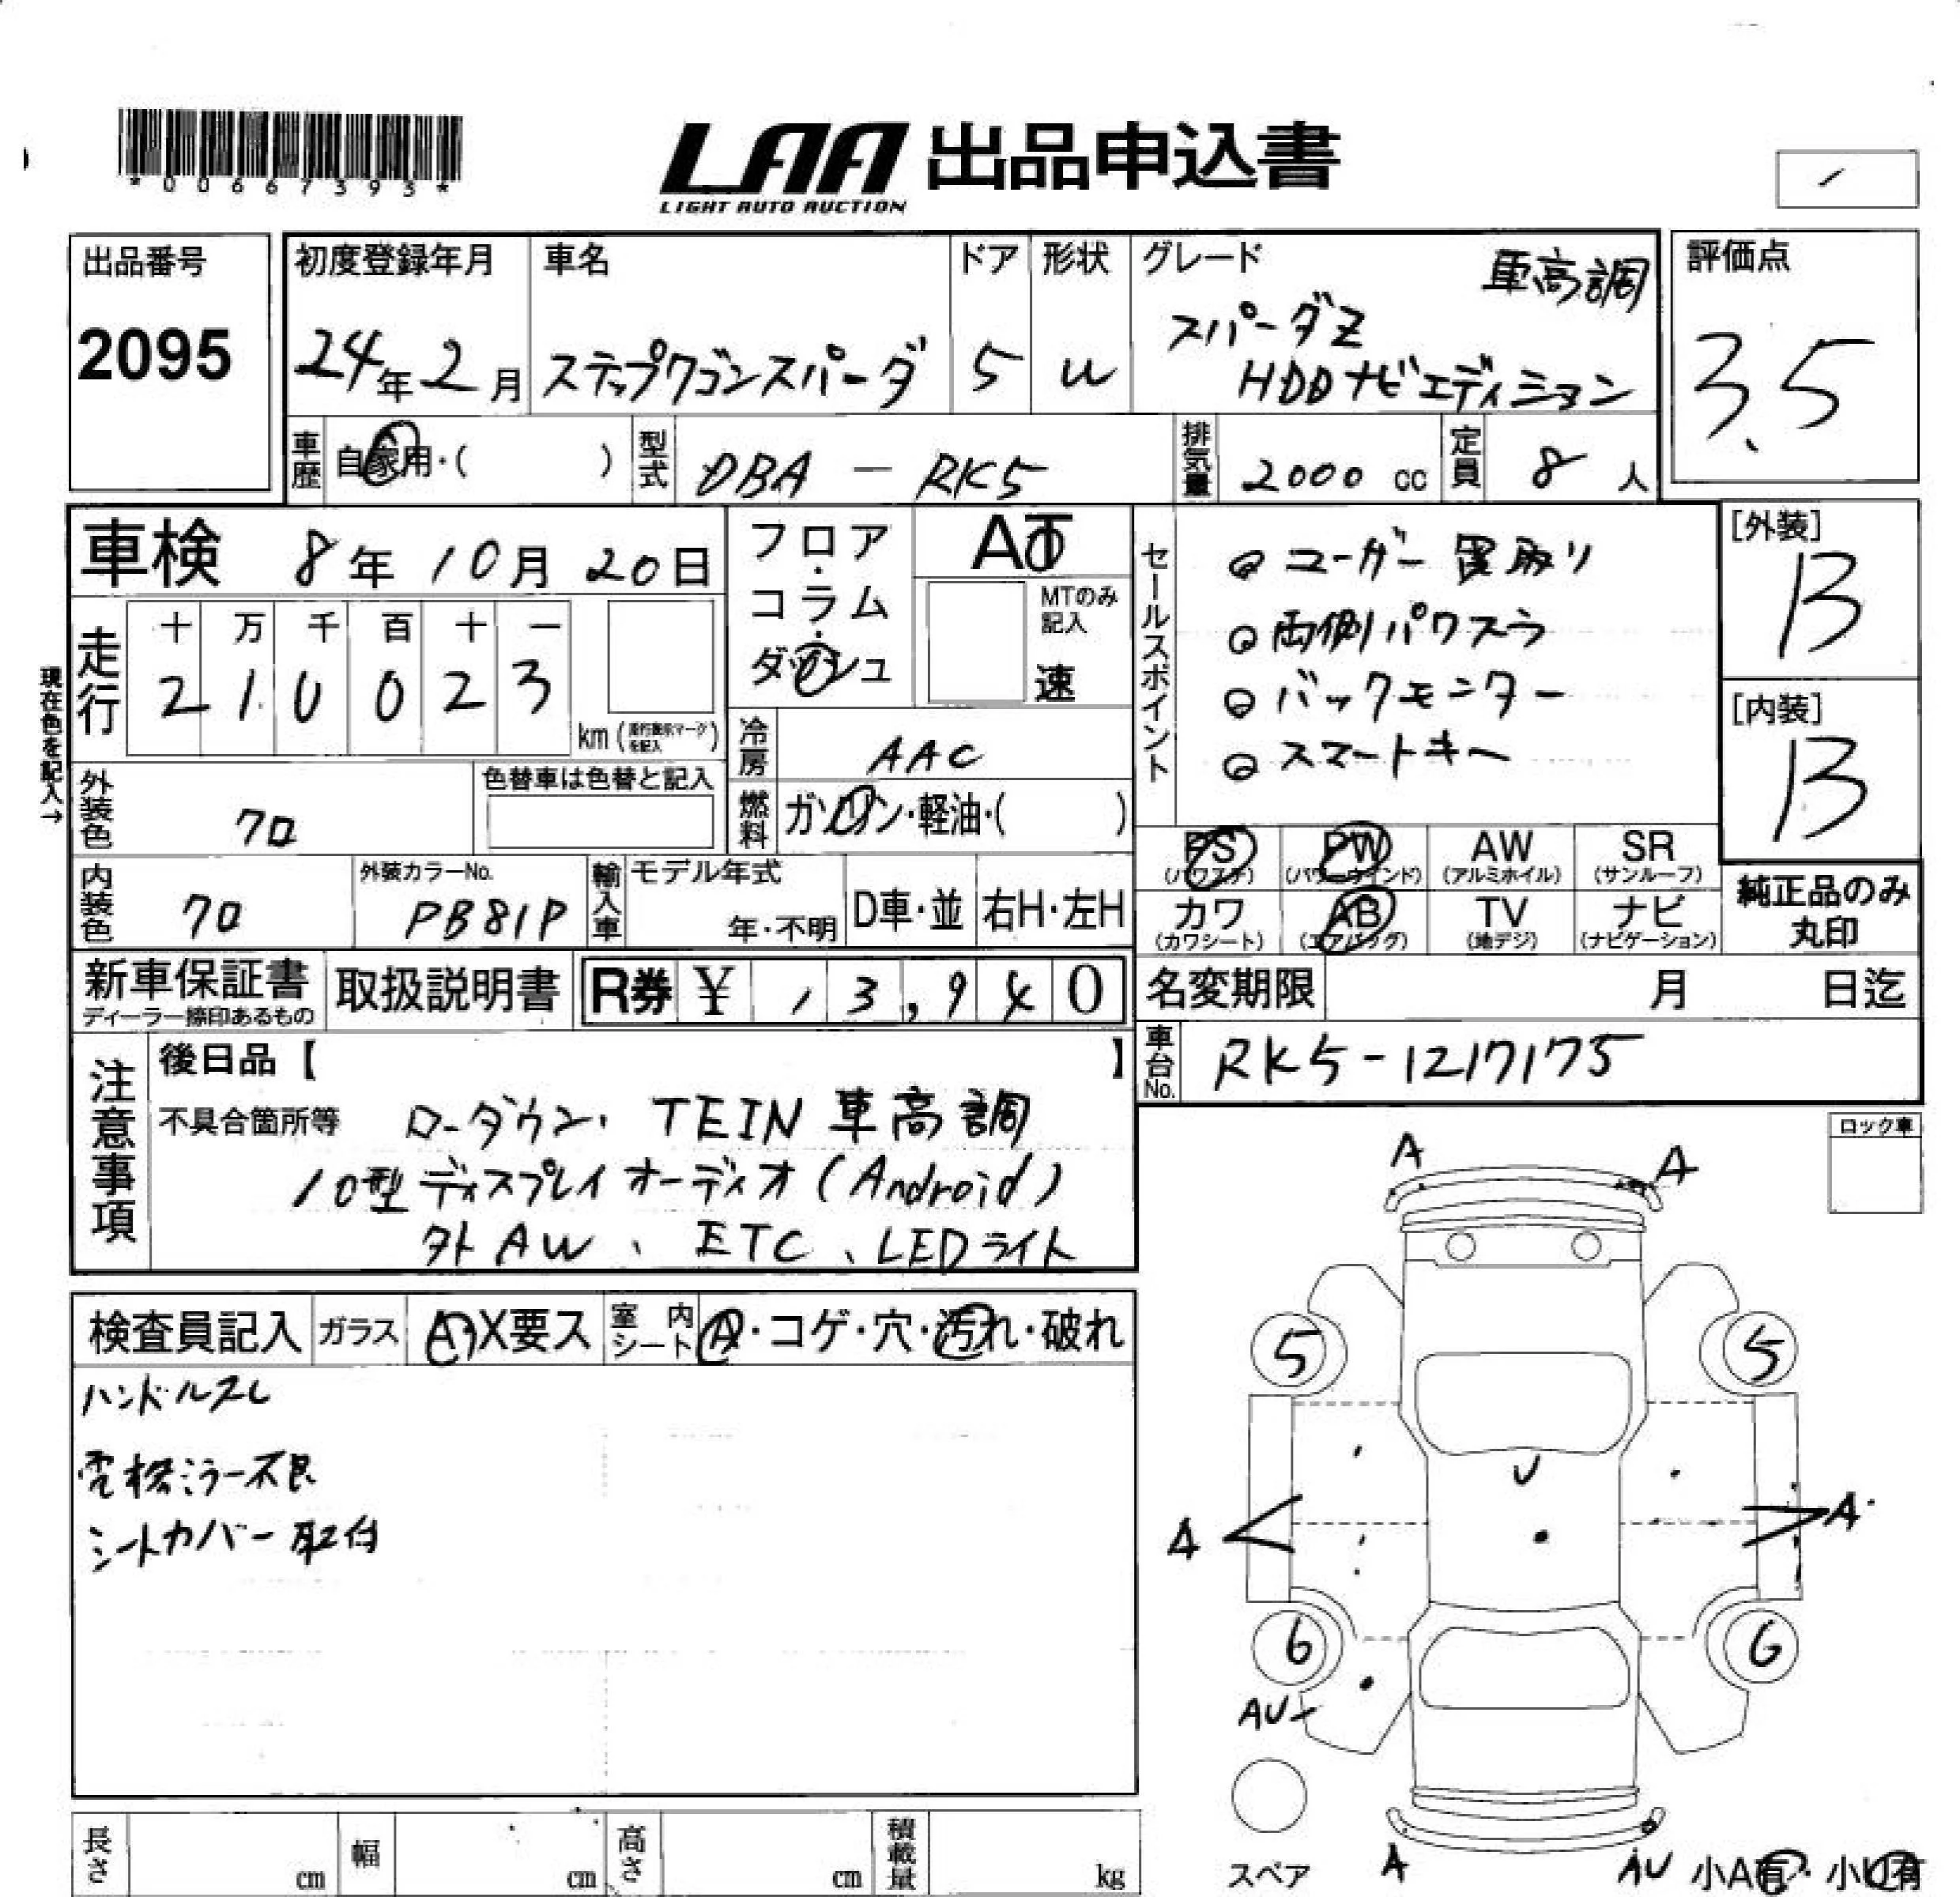 *00667393*
LAA 出品申込書
LIGHT AUTO AUCTION
出品番号
2095
初度登録年月
24年2月
車名
ステップワゴンスパーダ
ドア
5
形状
W
グレード
車高調
スパーダZ
HDDナビエディション
評価点
3.5
車歴 自家用・( )
型式 DBA - RK5
排気量 2000 cc
定員 8 人
車検 8年10月20日
フロア・コラム・ダッシュ
AT
MTのみ記入
速
セールスポイント
ユーザー買取り
両側パワスラ
バックモニター
スマートキー
[外装]
B
[内装]
B
現在色を記入→
走行
十 万 千 百 十 一
2 1 0 0 2 3
km (走行表示マークを記入)
冷房 AAC
燃料 ガソリン・軽油・( )
外装色 クロ
色替車は色替と記入
内装色 クロ
外装カラーNo.
PB81P
輸入車
モデル年式
年・不明
D車・並
右H・左H
PS (パワステ)
PW (パワーウインド)
AW (アルミホイル)
SR (サンルーフ)
カワ (カワシート)
AB (エアバッグ)
TV (地デジ)
ナビ (ナビゲーション)
純正品のみ
丸印
新車保証書
ディーラー捺印あるもの
取扱説明書
R券 ¥ 13,940
名変期限 月 日迄
車台No. RK5-1217175
注意事項
後日品【 】
不具合箇所等 ローダウン、TEIN 車高調
10型ディスプレイオーディオ(Android)
外AW、ETC、LEDライト
ロック車
検査員記入
ガラス A・X要ス
室内シート A・コゲ・穴・汚れ・破れ
ハンドルスレ
電格ミラー不良
シートカバー取付
A
A
5
5
U
A
A
6
6
AU
スペア
A
AU
小A有・小U有
長さ cm
幅 cm
高さ cm
積載量 kg